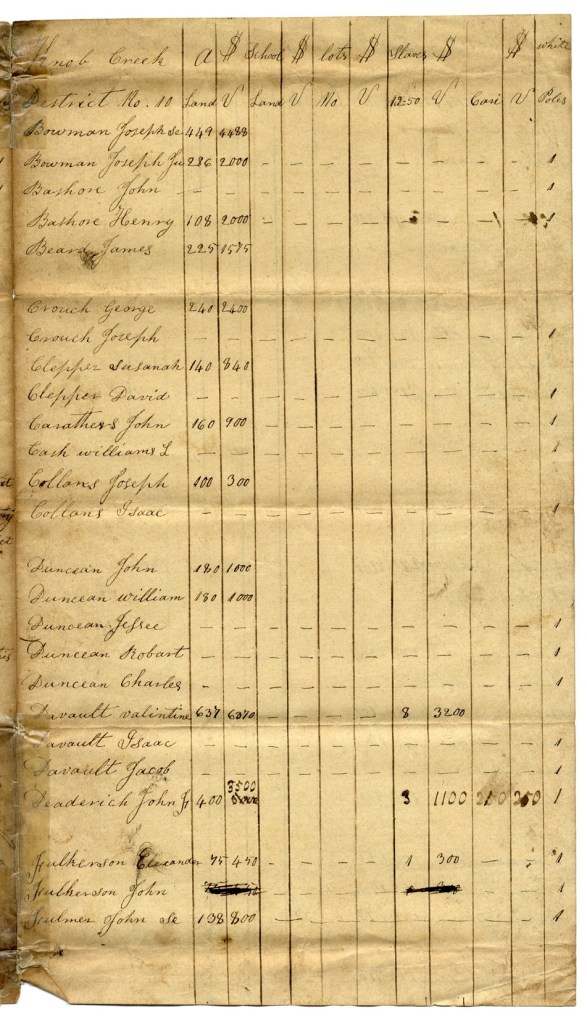 Knob Creek A $ School $ lots $ Slaves $ $ white
District No. 10 Land V Land V No V 12-50 V Cari V Poles
Bowman Joseph Se 449 4488
Bowman Joseph Ju 286 2000 - - - - - - - - 1
Bashore John - - - - - - - - - - 1
Bashore Henry 108 2000 - - - - - - 1
Beard James 225 1575
Crouch George 240 2400
Crouch Joseph - - - - - - - - - - 1
Clepper Susanah 140 840
Clepper David - - - - - - - - - - 1
Carathers John 160 900 - - - - - - - - 1
Cash williams L - - - - - - - - - - 1
Collans Joseph 100 300
Collans Isaac - - - - - - - - - - 1
Duncean John 180 1000
Duncean william 180 1000 - - - - - - - - 1
Duncean Jessee - - - - - - - - - - 1
Duncean Robart - - - - - - - - - - 1
Duncean Charles - - - - - - - - - - 1
Davault valintine 637 6370 - - - - 8 3200
Davault Isaac - - - - - - - - - - 1
Davault Jacob - - - - - - - - - - 1
3500
Deaderich John Jr 400 - - - - 3 1100 250 250 1
Fulkerson 75 450 - - - - 1 300 - - 1
Fulkerson John - - - - - - 1
Fulmer John Se 138 800 - - - - - - - - 1